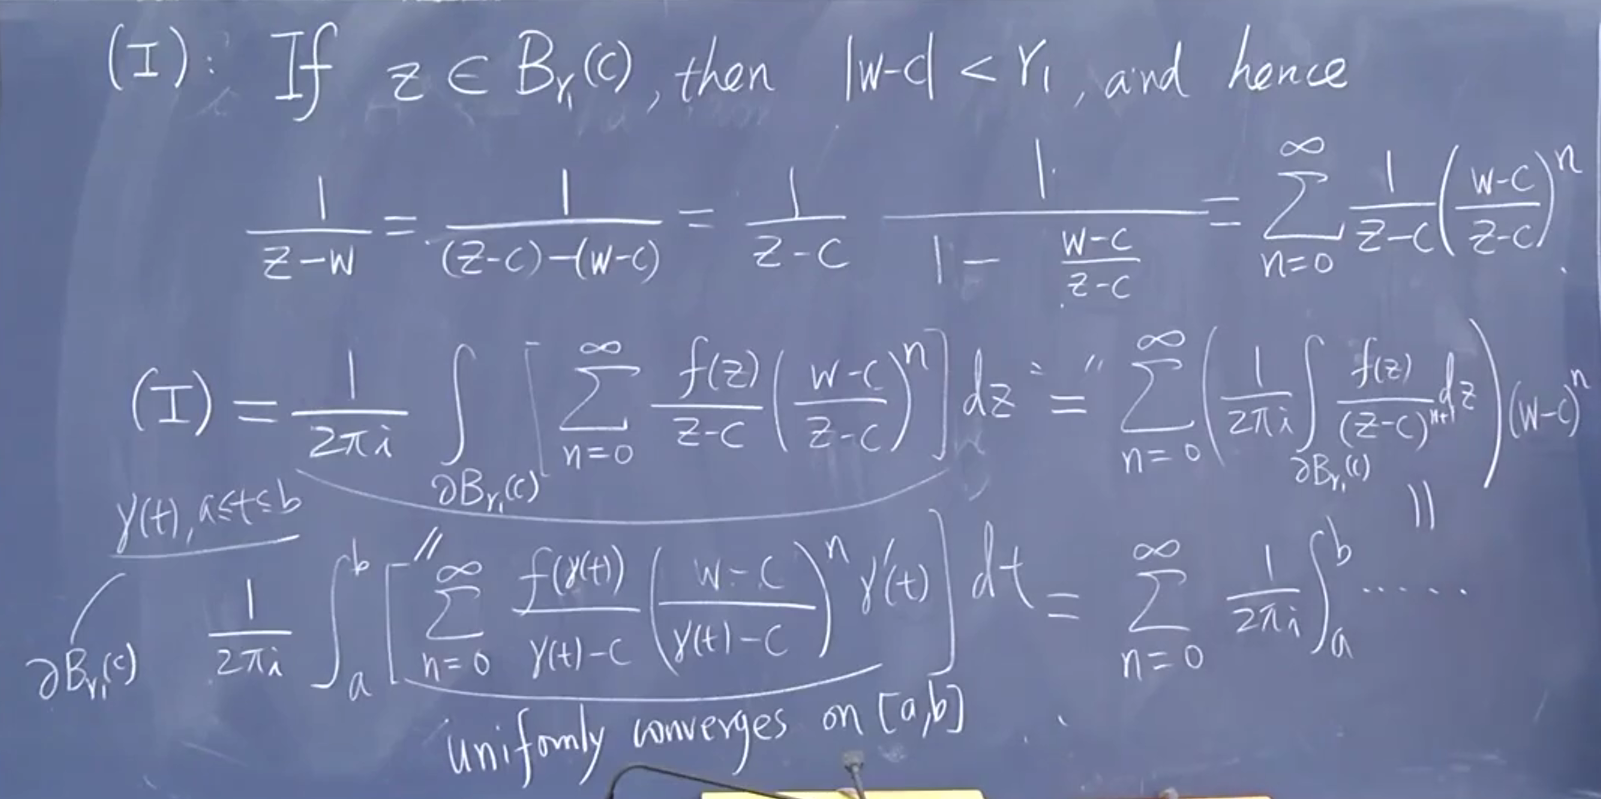 (I): If z ∈ B_{r_1}(c), then |w-c| < r_1, and hence
\frac{1}{z-w} = \frac{1}{(z-c)-(w-c)} = \frac{1}{z-c} \frac{1}{1-\frac{w-c}{z-c}} = \sum_{n=0}^{∞} \frac{1}{z-c} \left(\frac{w-c}{z-c}\right)^n.
(I) = \frac{1}{2πi} \int_{∂B_{r_1}(c)} \left[ \sum_{n=0}^{∞} \frac{f(z)}{z-c} \left(\frac{w-c}{z-c}\right)^n \right] dz "=" \sum_{n=0}^{∞} \left( \frac{1}{2πi} \int_{∂B_{r_1}(c)} \frac{f(z)}{(z-c)^{n+1}} dz \right) (w-c)^n
γ(t), a≤t≤b
∂B_{r_1}(c)
|| ||
\frac{1}{2πi} \int_a^b \left[ \sum_{n=0}^{∞} \frac{f(γ(t))}{γ(t)-c} \left(\frac{w-c}{γ(t)-c}\right)^n γ'(t) \right] dt = \sum_{n=0}^{∞} \frac{1}{2πi} \int_a^b ......
uniformly converges on [a,b]